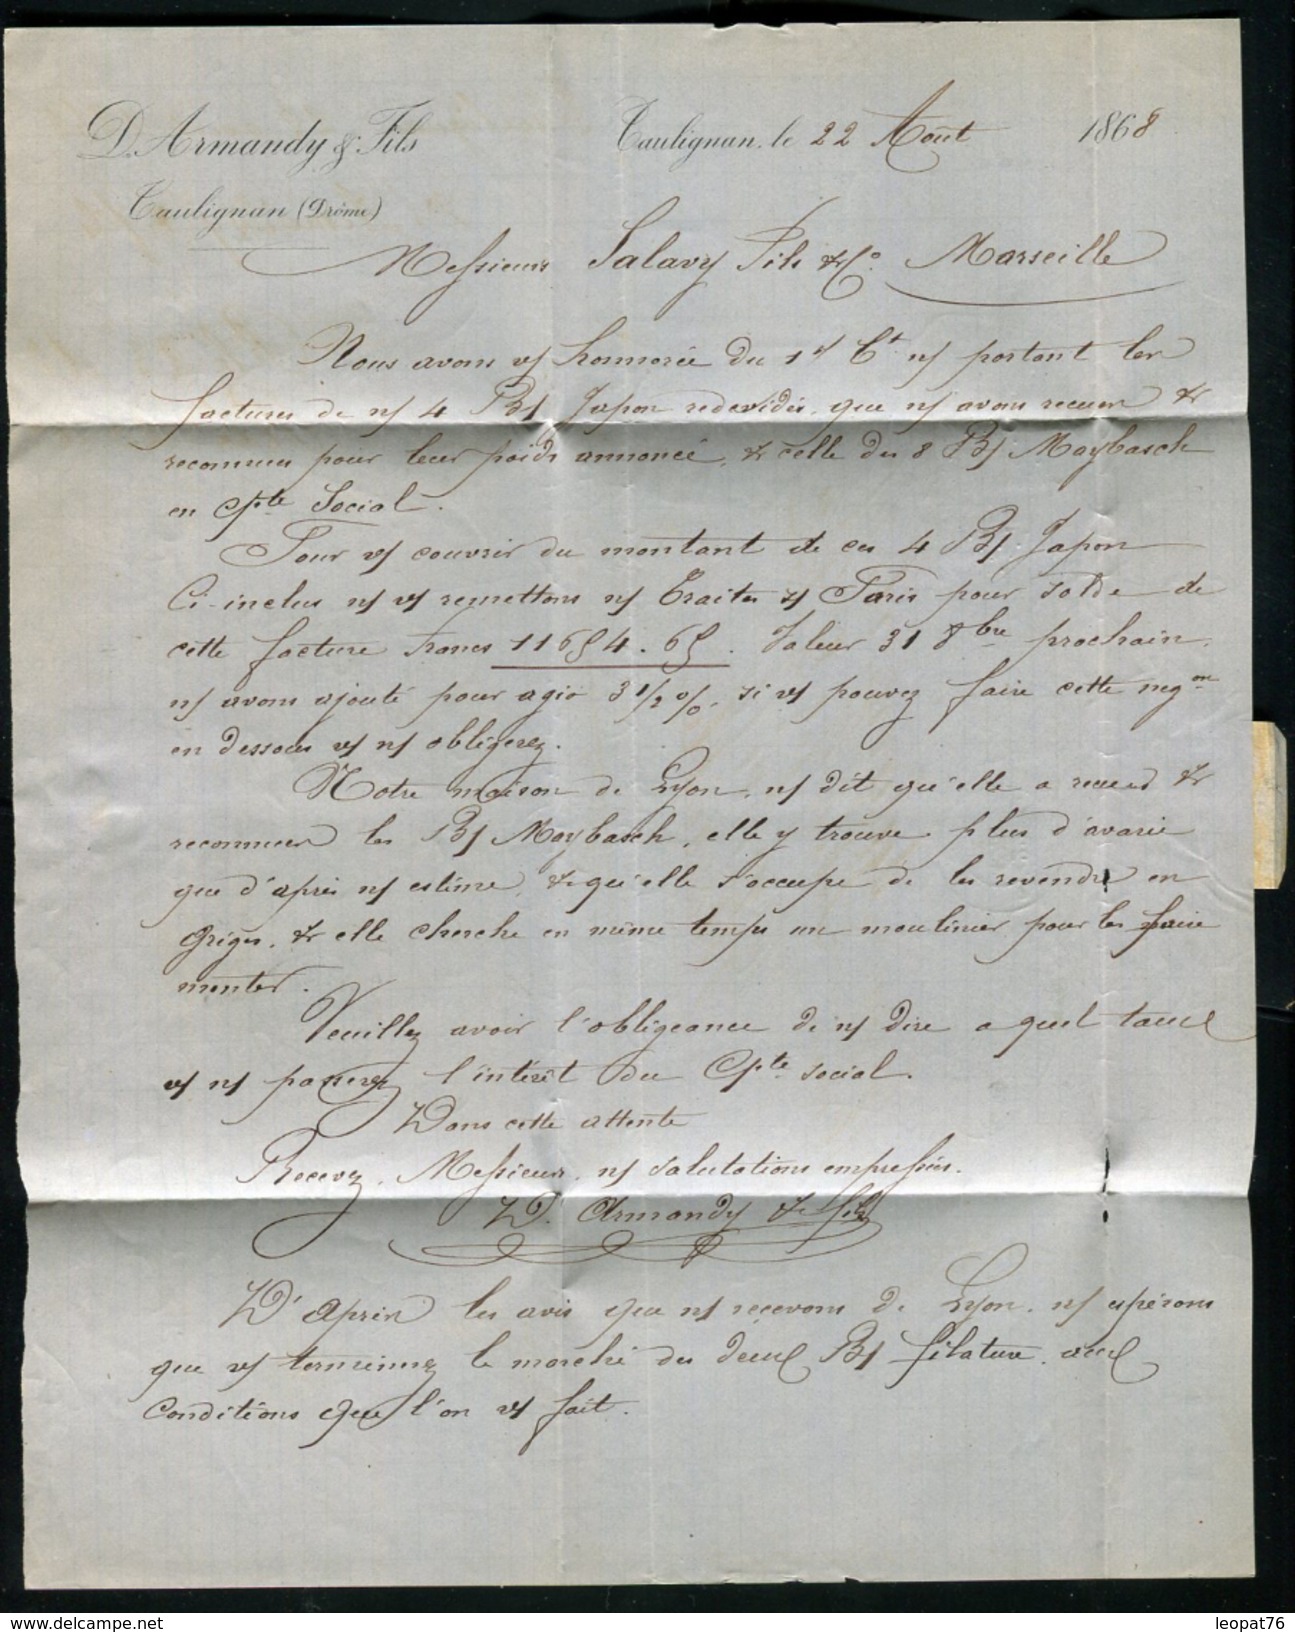 D. Armandy & Fils
Taulignan (Drôme)
Taulignan, le 22 Août 1868
Messieurs Salavy Fils & Co. Marseille
Nous avons v/ honnorée du 1er Ct n/ portant les
factures de n/ 4 B/ Japon redevidés, que n/ avons recues &
reconnues pour leur poids annoncé, & celle des 8 B/ Maybasch
en Cpte Social.
Pour v/ couvrir du montant de ces 4 B/ Japon
Ci-inclus n/ v/ remettons n/ Traites s/ Paris pour solde de
cette facture Francs 11654.65. Valeur 31 8bre prochain,
n/ avons ajouté pour agio 3 1/2 %, si v/ pouvez faire cette negon
en dessous v/ n/ obligerez.
Notre maison de Lyon, n/ dit qu'elle a recues &
reconnues les B/ Maybasch, elle y trouve plus d'avarie
que d'après n/ estime, & qu'elle s'occupe de les revendre en
Grèges, & elle cherche en même temps un moulinier pour les faire
monter.
Veuillez avoir l'obligeance de n/ dire a quel taux
v/ n/ passerez l'intérêt du Cpte social.
Dans cette attente
Recevez, Messieurs, n/ salutations empressées.
D. Armandy & fils
D'après les avis que n/ recevons de Lyon, n/ espérons
que v/ terminerez le marché des deux B/ filature, aux
Conditions que l'on v/ fait.
leopat76
www.delcampe.net